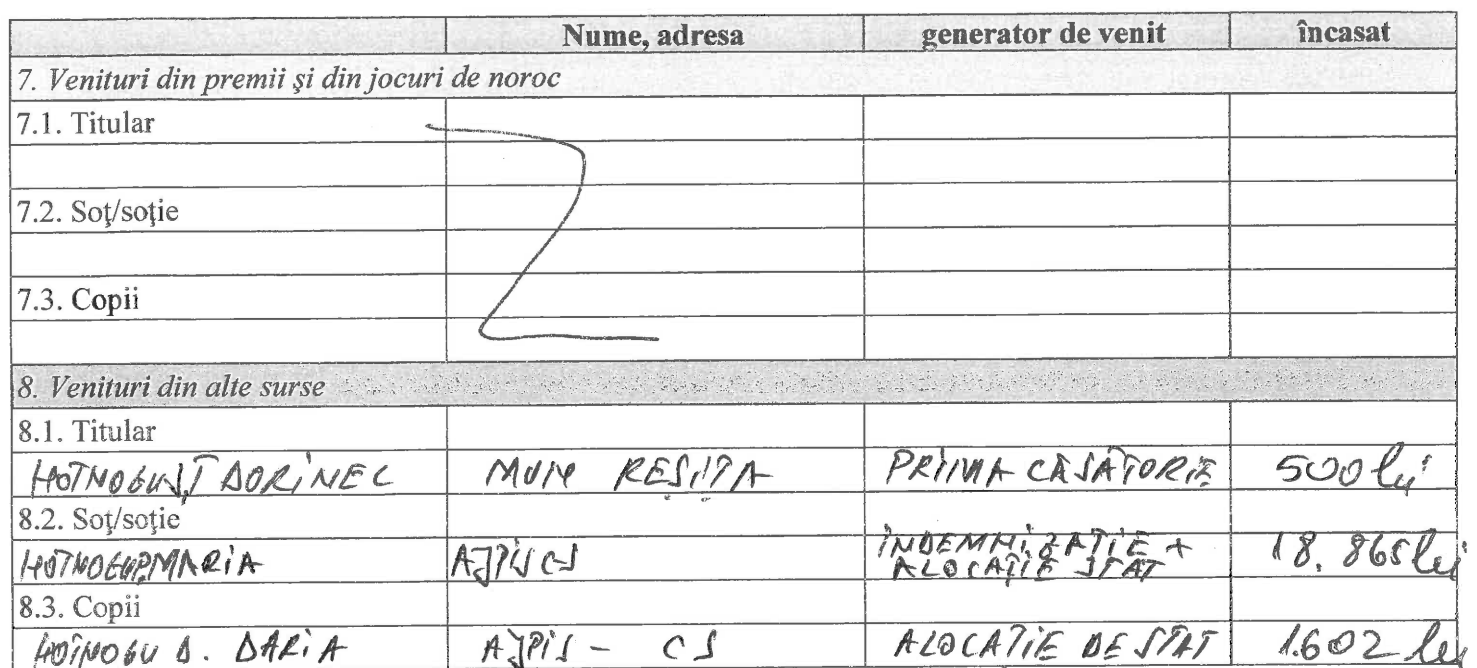 Nume, adresa generator de venit încasat
7. Venituri din premii şi din jocuri de noroc
7.1. Titular
7.2. Soţ/soţie
7.3. Copii
8. Venituri din alte surse
8.1. Titular
DORINEL MUN REȘIȚA PRIMA CĂSĂTORIE 500 lei
8.2. Soţ/soţie
MARIA AJPIS CS INDEMNIZAȚIE + ALOCAȚIE STAT 18.865 lei
8.3. Copii
HOTNOGU D. DARIA AJPIS - CS ALOCAȚIE DE STAT 1.602 lei